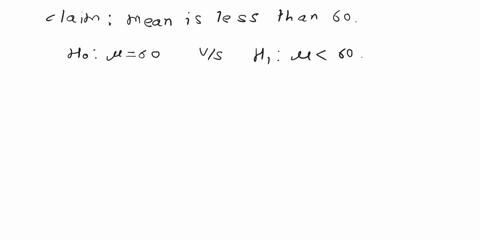 claim: mean is less than 60.
H₀: μ=60 V/s H₁: μ< 60.